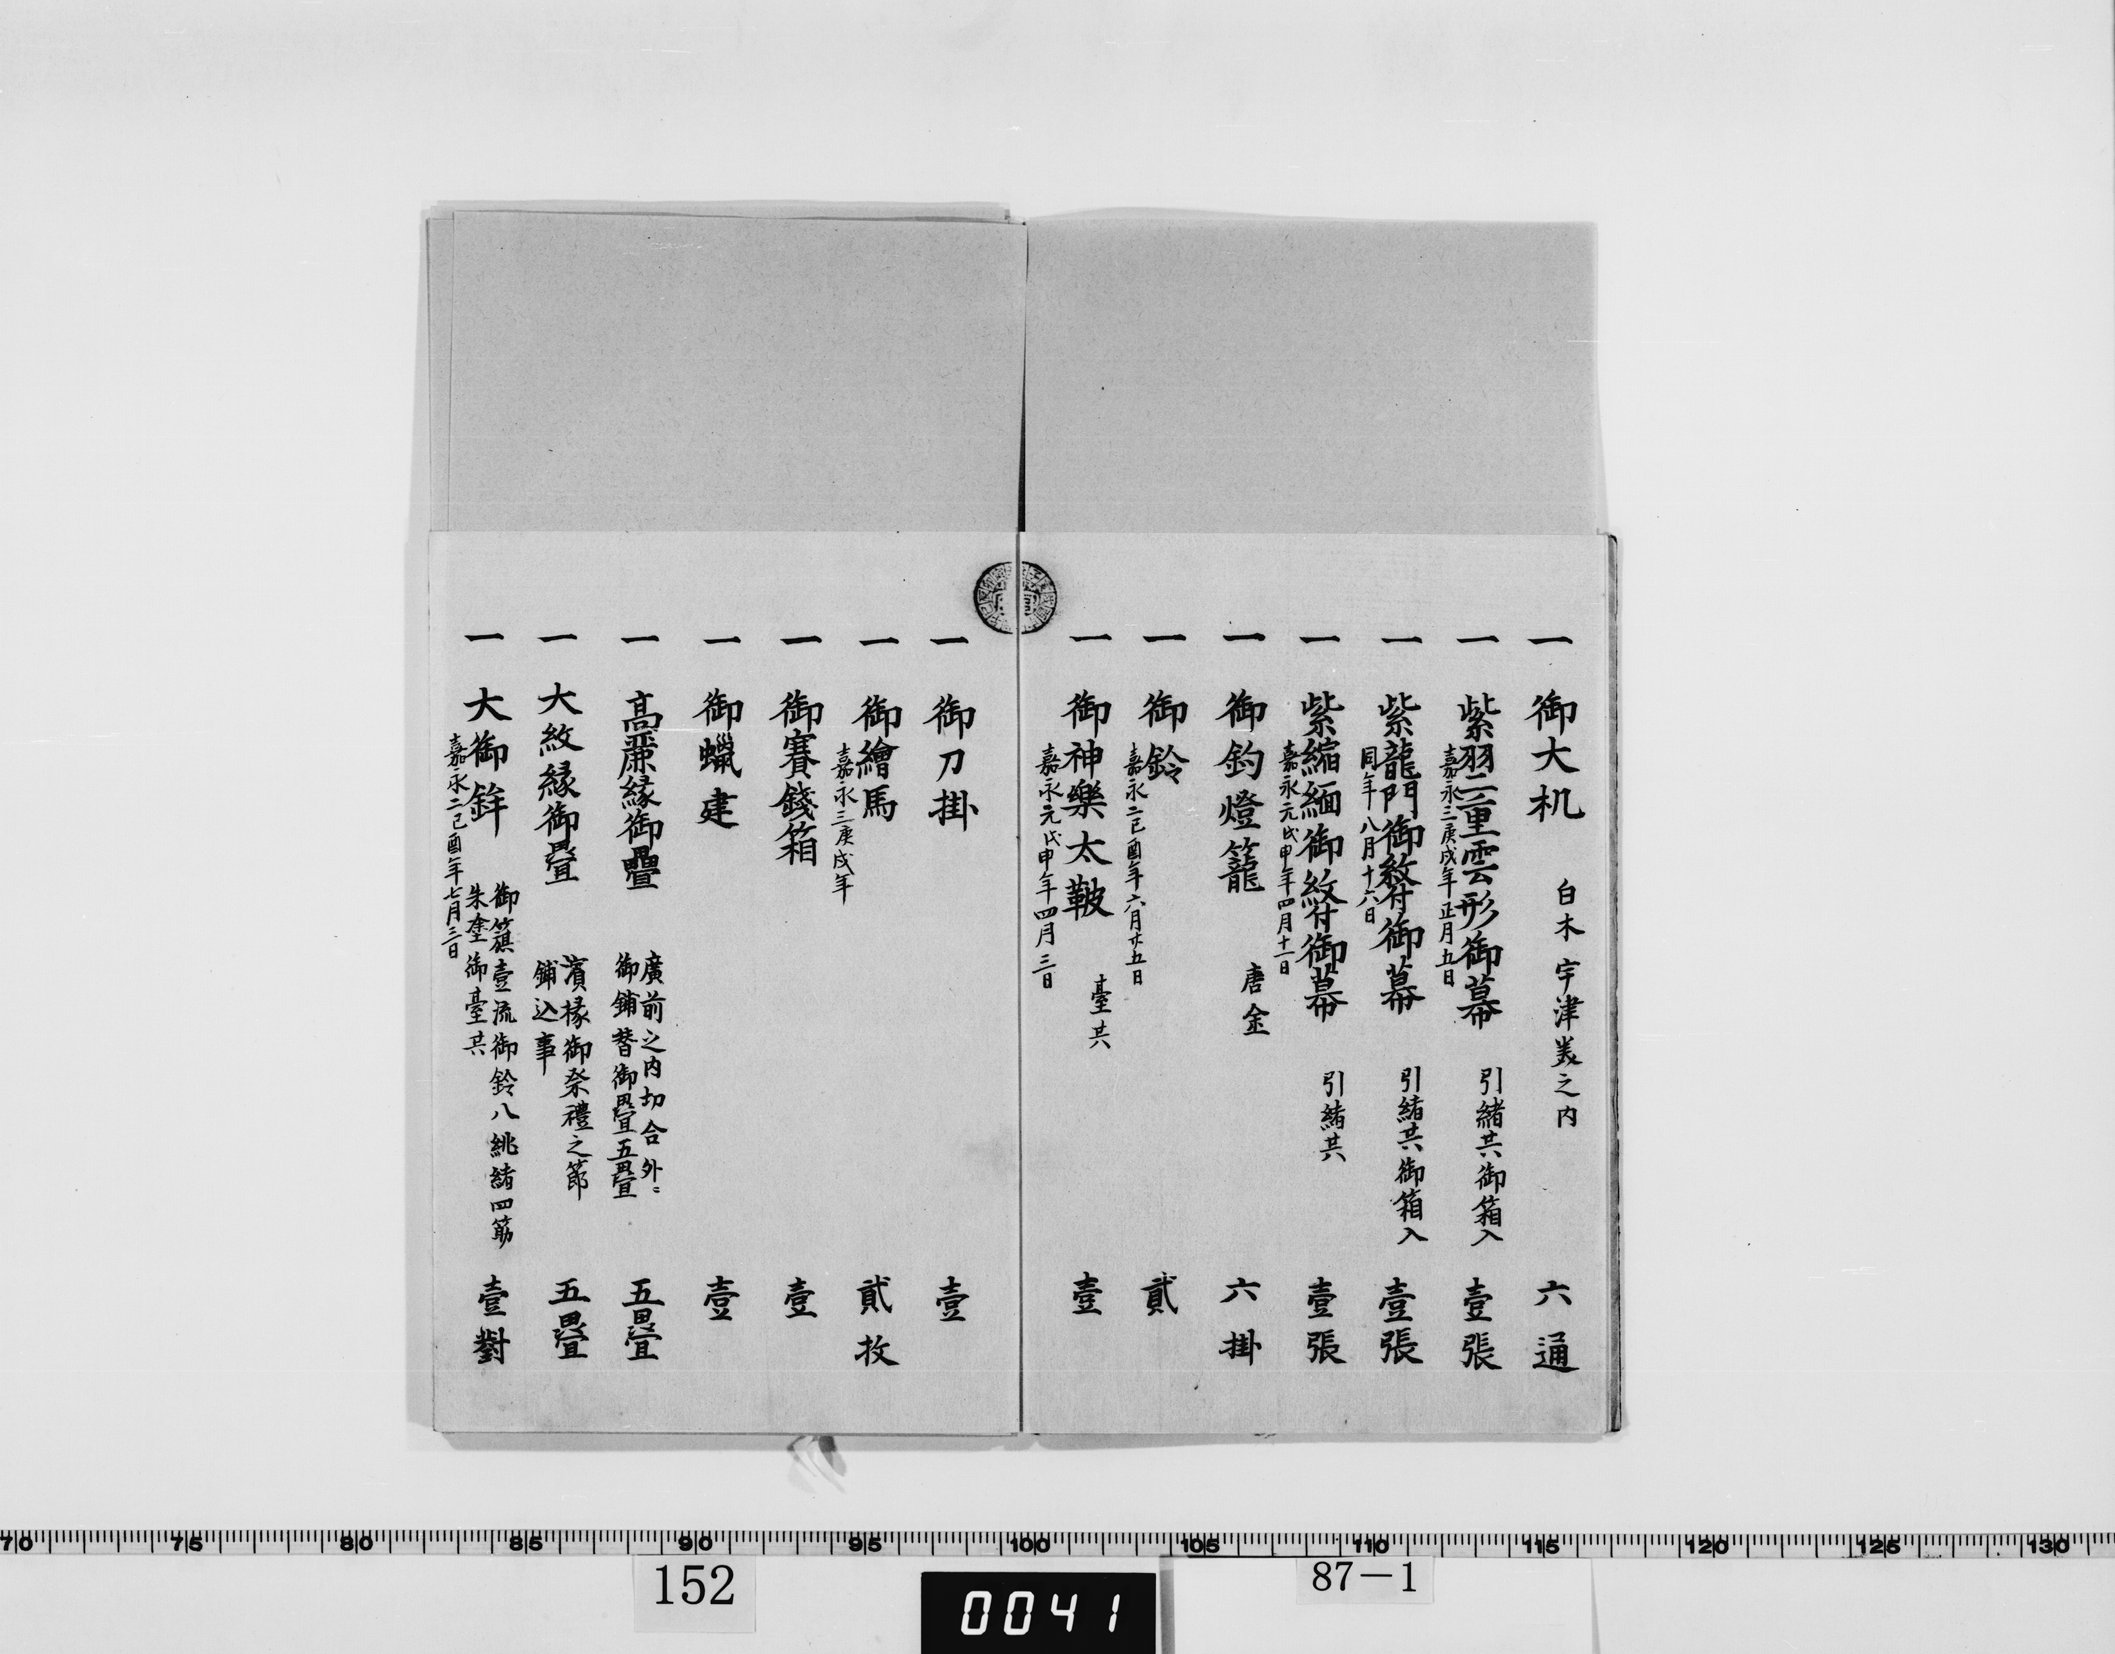 一 御大机 白木宇津美之内 六通
一 紫羽二重雲形御幕 引緒共御箱入 壹張
嘉永三庚戌年正月五日
一 紫龍門御紋付御幕 引緒共御箱入 壹張
同年八月十六日
一 紫縮緬御紋付御幕 引緒共 壹張
嘉永元戊申年四月十一日
一 御釣燈籠 唐金 六掛
一 御鈴 貳
嘉永二己酉年六月廿五日
一 御神樂太鞁 臺共 壹
嘉永元戊申年四月三日
一 御刀掛 壹
一 御繪馬 貳枚
嘉永三庚戌年
一 御賽錢箱 壹
一 御蠟建 壹
一 高麗縁御疊 五疊
廣前之内切合外ニ
御鋪替御疊五疊
一 大紋縁御疊 五疊
濱椽御祭禮之節
鋪込事
一 大御鉾 壹對
御籏壹流御鈴八紐緒四筋
朱塗御臺共
嘉永二己酉年七月三日
70 75 80 85 90 95 100 105 110 115 120 125 130
152
0041
87-1